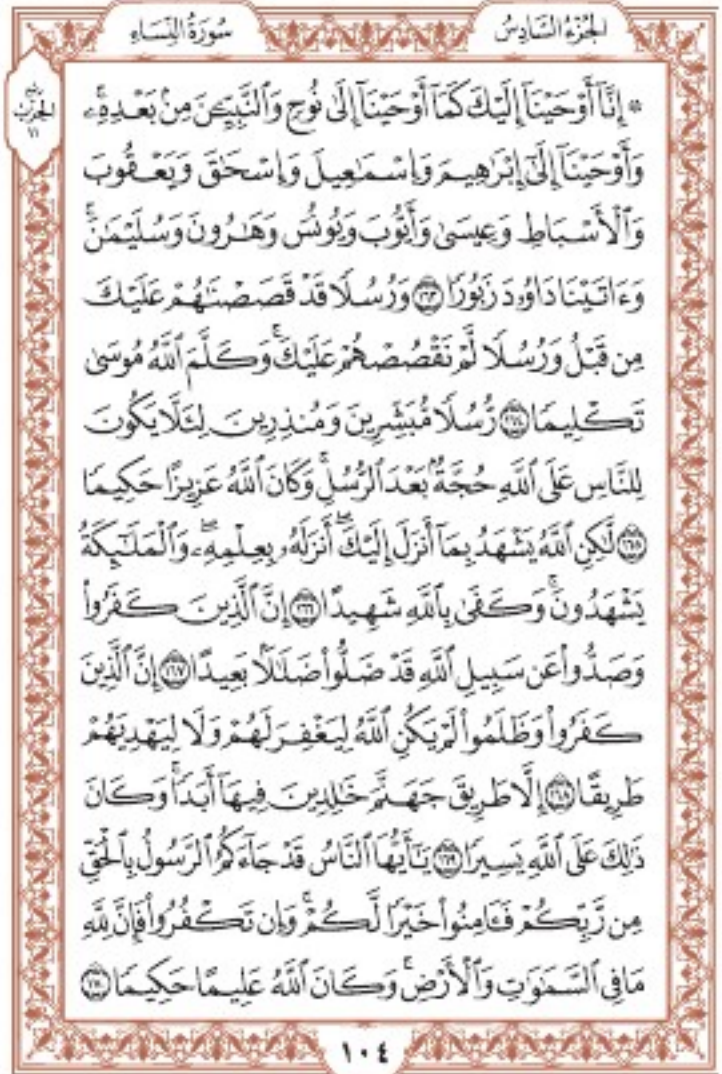 سُورَةُ النِّسَاءِ
الجُزْءُ السَّادِسُ
ربع
الحِزْب
١١
۞ إِنَّآ أَوْحَيْنَآ إِلَيْكَ كَمَآ أَوْحَيْنَآ إِلَىٰ نُوحٍ وَٱلنَّبِيِّـۧنَ مِنۢ بَعْدِهِۦۚ
وَأَوْحَيْنَآ إِلَىٰٓ إِبْرَٰهِيمَ وَإِسْمَٰعِيلَ وَإِسْحَٰقَ وَيَعْقُوبَ
وَٱلْأَسْبَاطِ وَعِيسَىٰ وَأَيُّوبَ وَيُونُسَ وَهَٰرُونَ وَسُلَيْمَٰنَۚ
وَءَاتَيْنَا دَاوُۥدَ زَبُورًا ١٦٣ وَرُسُلًا قَدْ قَصَصْنَٰهُمْ عَلَيْكَ
مِن قَبْلُ وَرُسُلًا لَّمْ نَقْصُصْهُمْ عَلَيْكَۚ وَكَلَّمَ ٱللَّهُ مُوسَىٰ
تَكْلِيمًا ١٦٤ رُّسُلًا مُّبَشِّرِينَ وَمُنذِرِينَ لِئَلَّا يَكُونَ
لِلنَّاسِ عَلَى ٱللَّهِ حُجَّةٌۢ بَعْدَ ٱلرُّسُلِۚ وَكَانَ ٱللَّهُ عَزِيزًا حَكِيمًا
١٦٥ لَّٰكِنِ ٱللَّهُ يَشْهَدُ بِمَآ أَنزَلَ إِلَيْكَۖ أَنزَلَهُۥ بِعِلْمِهِۦۖ وَٱلْمَلَٰٓئِكَةُ
يَشْهَدُونَۚ وَكَفَىٰ بِٱللَّهِ شَهِيدًا ١٦٦ إِنَّ ٱلَّذِينَ كَفَرُوا۟
وَصَدُّوا۟ عَن سَبِيلِ ٱللَّهِ قَدْ ضَلُّوا۟ ضَلَٰلًۢا بَعِيدًا ١٦٧ إِنَّ ٱلَّذِينَ
كَفَرُوا۟ وَظَلَمُوا۟ لَمْ يَكُنِ ٱللَّهُ لِيَغْفِرَ لَهُمْ وَلَا لِيَهْدِيَهُمْ
طَرِيقًا ١٦٨ إِلَّا طَرِيقَ جَهَنَّمَ خَٰلِدِينَ فِيهَآ أَبَدًاۚ وَكَانَ
ذَٰلِكَ عَلَى ٱللَّهِ يَسِيرًا ١٦٩ يَٰٓأَيُّهَا ٱلنَّاسُ قَدْ جَآءَكُمُ ٱلرَّسُولُ بِٱلْحَقِّ
مِن رَّبِّكُمْ فَـَٔامِنُوا۟ خَيْرًا لَّكُمْۚ وَإِن تَكْفُرُوا۟ فَإِنَّ لِلَّهِ
مَا فِى ٱلسَّمَٰوَٰتِ وَٱلْأَرْضِۚ وَكَانَ ٱللَّهُ عَلِيمًا حَكِيمًا ١٧٠
١٠٤